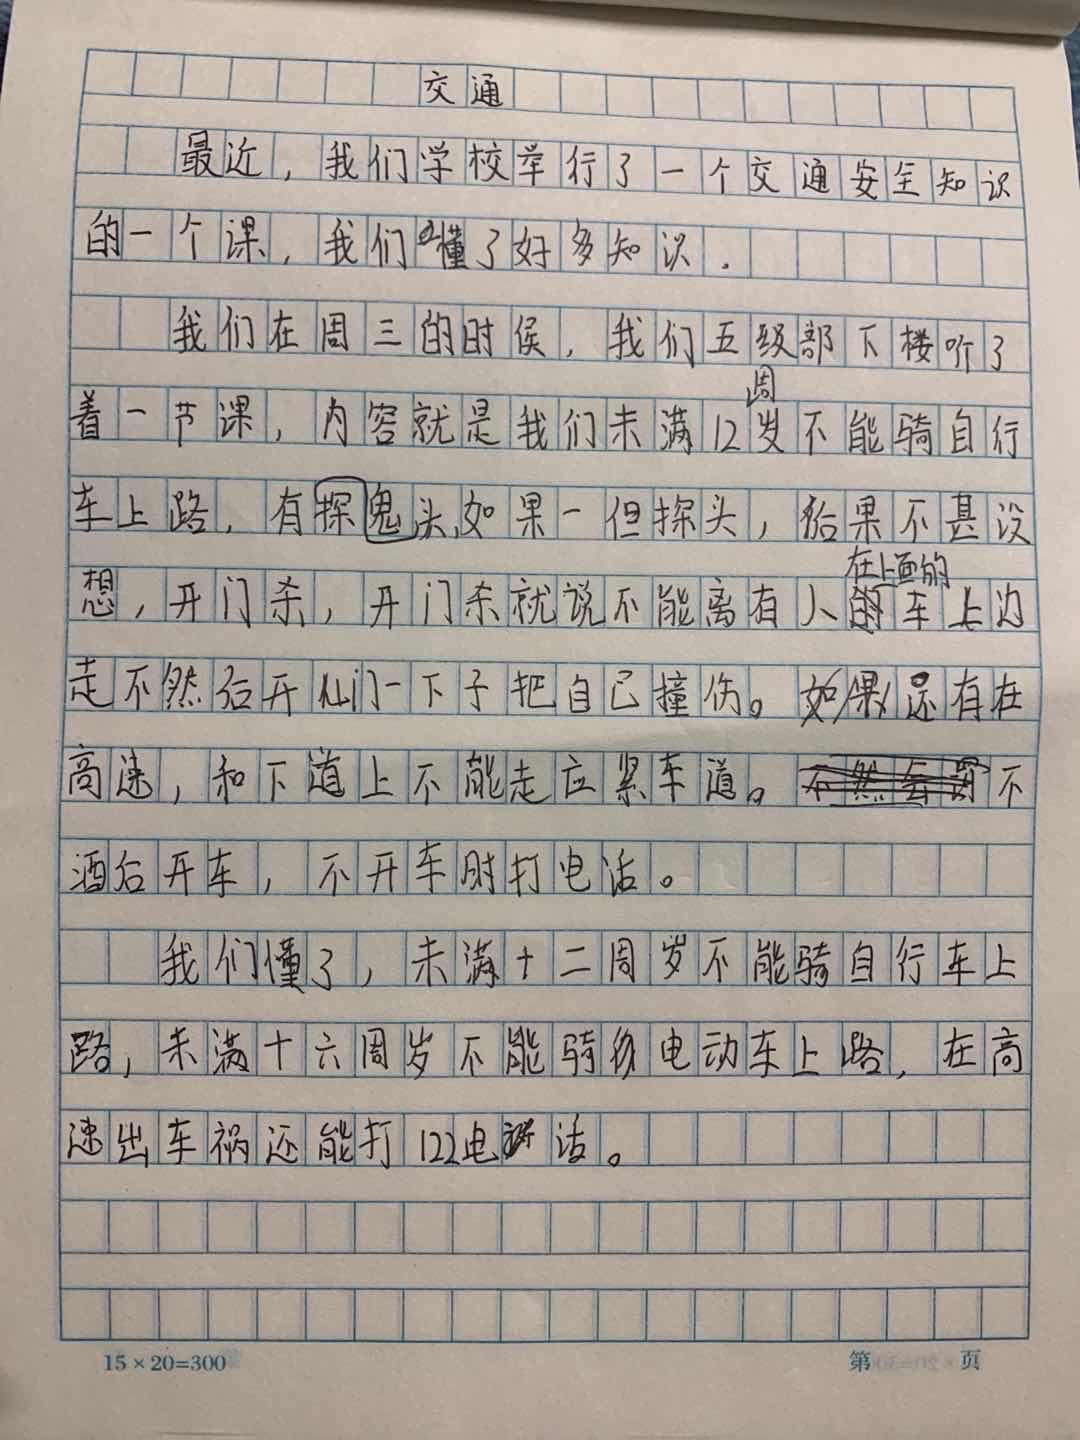 交通
最近，我们学校举行了一个交通安全知识
的一个课，我们懂了好多知识．
我们在周三的时侯，我们五级部下楼听了
着一节课，内容就是我们未满12周岁不能骑自行
车上路，有鬼探头，如果一但探头，后果不甚没
想，开门杀，开门杀就说不能离有人在上面的车上边
走不然后开门一下子把自己撞伤。还有在
高速，和下道上不能走应紧车道。不
酒后开车，不开车时打电话。
我们懂了，未满十二周岁不能骑自行车上
路，未满十六周岁不能骑电动车上路，在高
速出车祸还能打122电话。
15×20=300
第 页